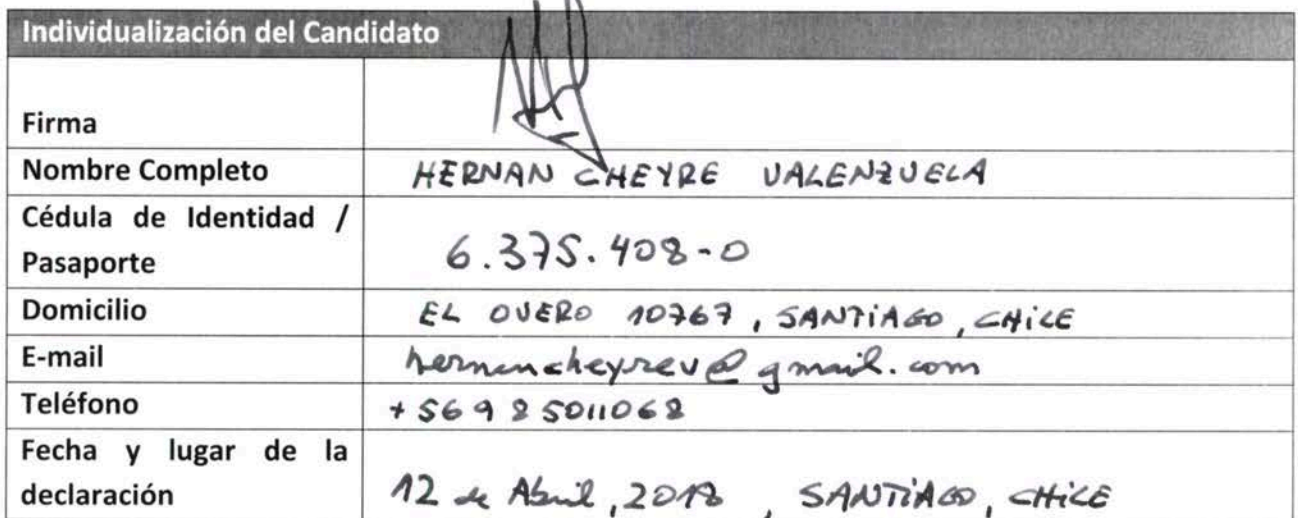 Individualización del Candidato
Firma
Nombre Completo HERNAN CHEYRE VALENZUELA
Cédula de Identidad /
Pasaporte 6.375.408-0
Domicilio EL OVERO 10767, SANTIAGO, CHILE
E-mail hernancheyrev@gmail.com
Teléfono +569 85011068
Fecha y lugar de la
declaración 12 de Abril, 2018, SANTIAGO, CHILE